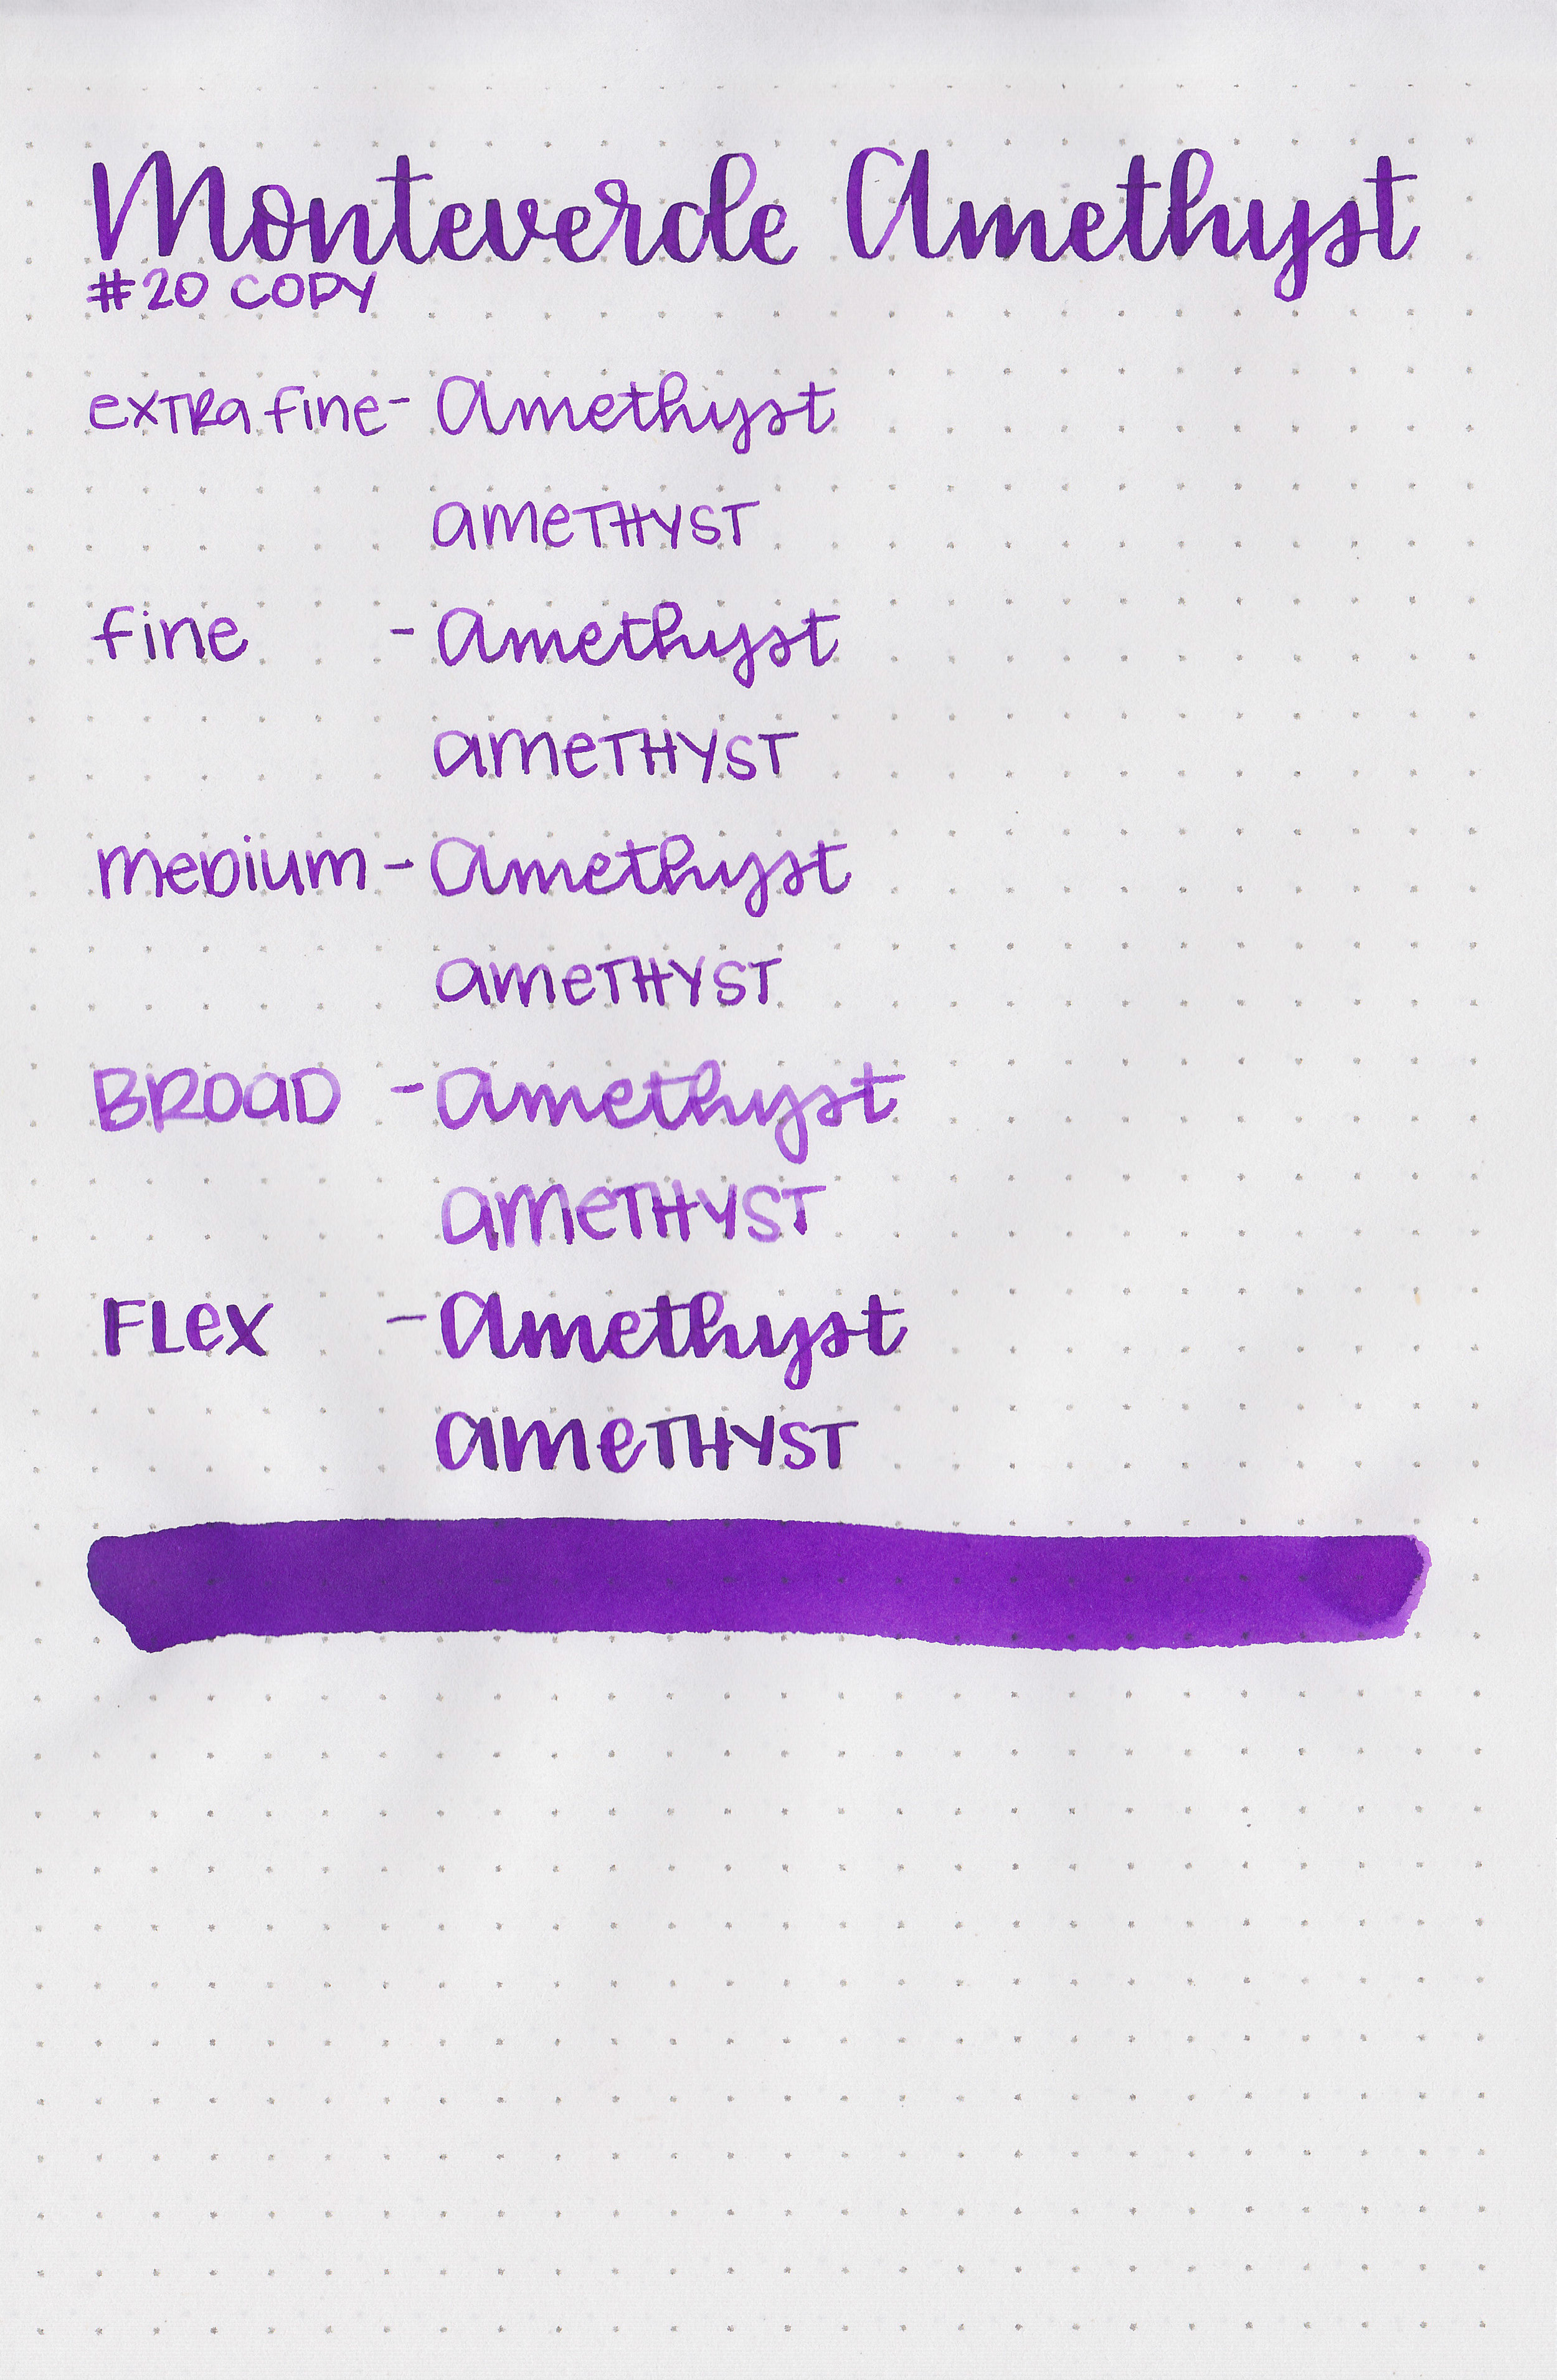 Monteverde Amethyst
#20 COPY
extra fine - Amethyst
amethyst
fine - Amethyst
amethyst
medium - Amethyst
amethyst
Broad - Amethyst
amethyst
Flex - Amethyst
amethyst